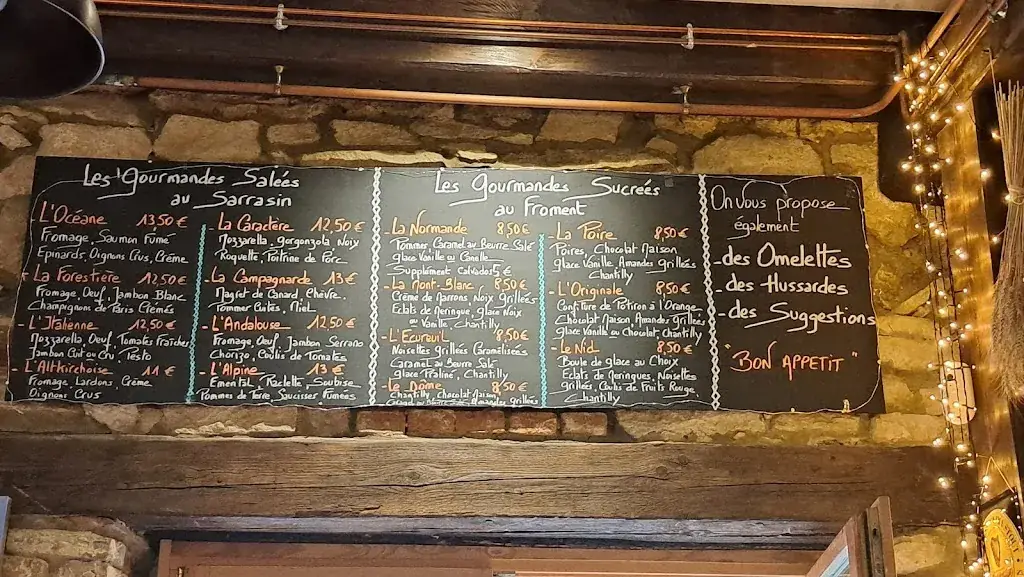 Les Gourmandes Salées
au Sarrasin
L'Océane 13,50 €
Fromage, Saumon Fumé
Epinards, Oignons Crus, Crème
- La Forestière 12,50 €
Fromage, Oeuf, Jambon Blanc
Champignons de Paris Crèmés
- L'Italienne 12,50 €
Mozzarella, Oeuf, Tomates fraîches
Jambon Cuit ou Cru, Pesto
- L'Altkirchoise 11 €
Fromage, Lardons, Crème
Oignons Crus
- La Caractère 12,50 €
Mozzarella, gorgonzola, Noix
Roquette, Poitrine de Porc
- La Campagnarde 13 €
Magret de Canard, Chèvre,
Pommes Cuites, Miel
- L'Andalouse 12,50 €
Fromage, Oeuf, Jambon Serrano
Chorizo, Coulis de Tomates
- L'Alpine 13 €
Emental, Raclette, Soubise
Pommes de Terre, Saucisses Fumées
Les Gourmandes Sucrées
au Froment
- La Normande 8,50 €
Pommes, Caramel au Beurre Salé
glace Vanille ou Canelle
Supplément Calvados 5 €
- La Mont-Blanc 8,50 €
Crème de Marrons, Noix Grillées
Eclats de Meringue, glace Noix
ou Vanille, Chantilly
- L'Ecureuil 8,50 €
Noisettes grillées Caramélisées
Caramel au Beurre Salé
glace Praliné, Chantilly
- Le Dôme 8,50 €
Chantilly, Chocolat Maison,
au Beurre Salé, Amandes grillées
- La Poire 8,50 €
Poires, Chocolat Maison,
glace Vanille, Amandes Grillées
Chantilly
- L'Originale 8,50 €
Confiture de Potiron à l'Orange
Chocolat Maison, Amandes Grillées
glace Vanille ou Chocolat, Chantilly
- Le Nid 8,50 €
Boule de glace au Choix
Eclats de Meringues, Noisettes
grillées, Coulis de Fruits Rouge,
Chantilly
On Vous propose
également
- des Omelettes
- des Hussardes
- des Suggestions
"BON APPETIT"